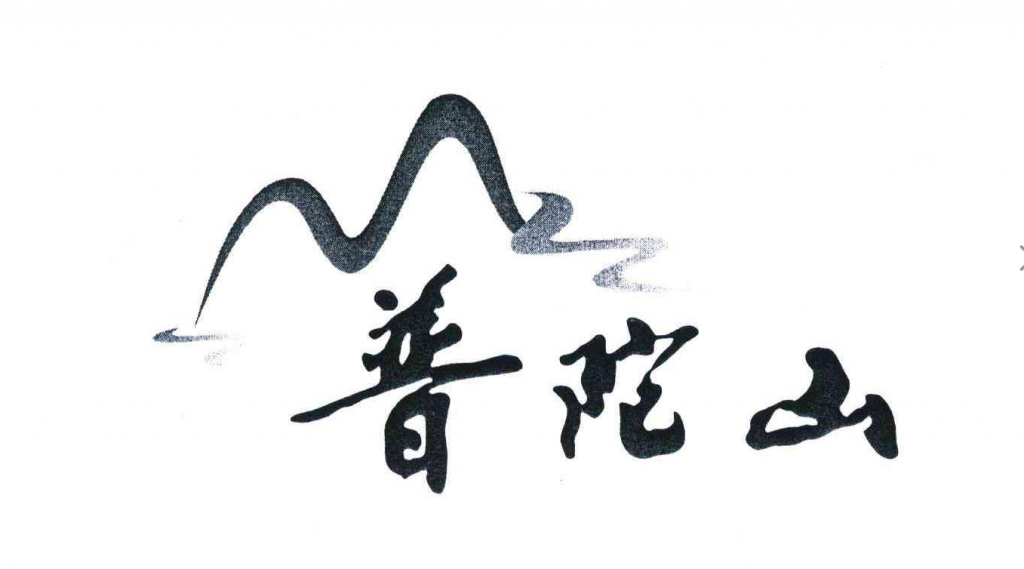 普陀山